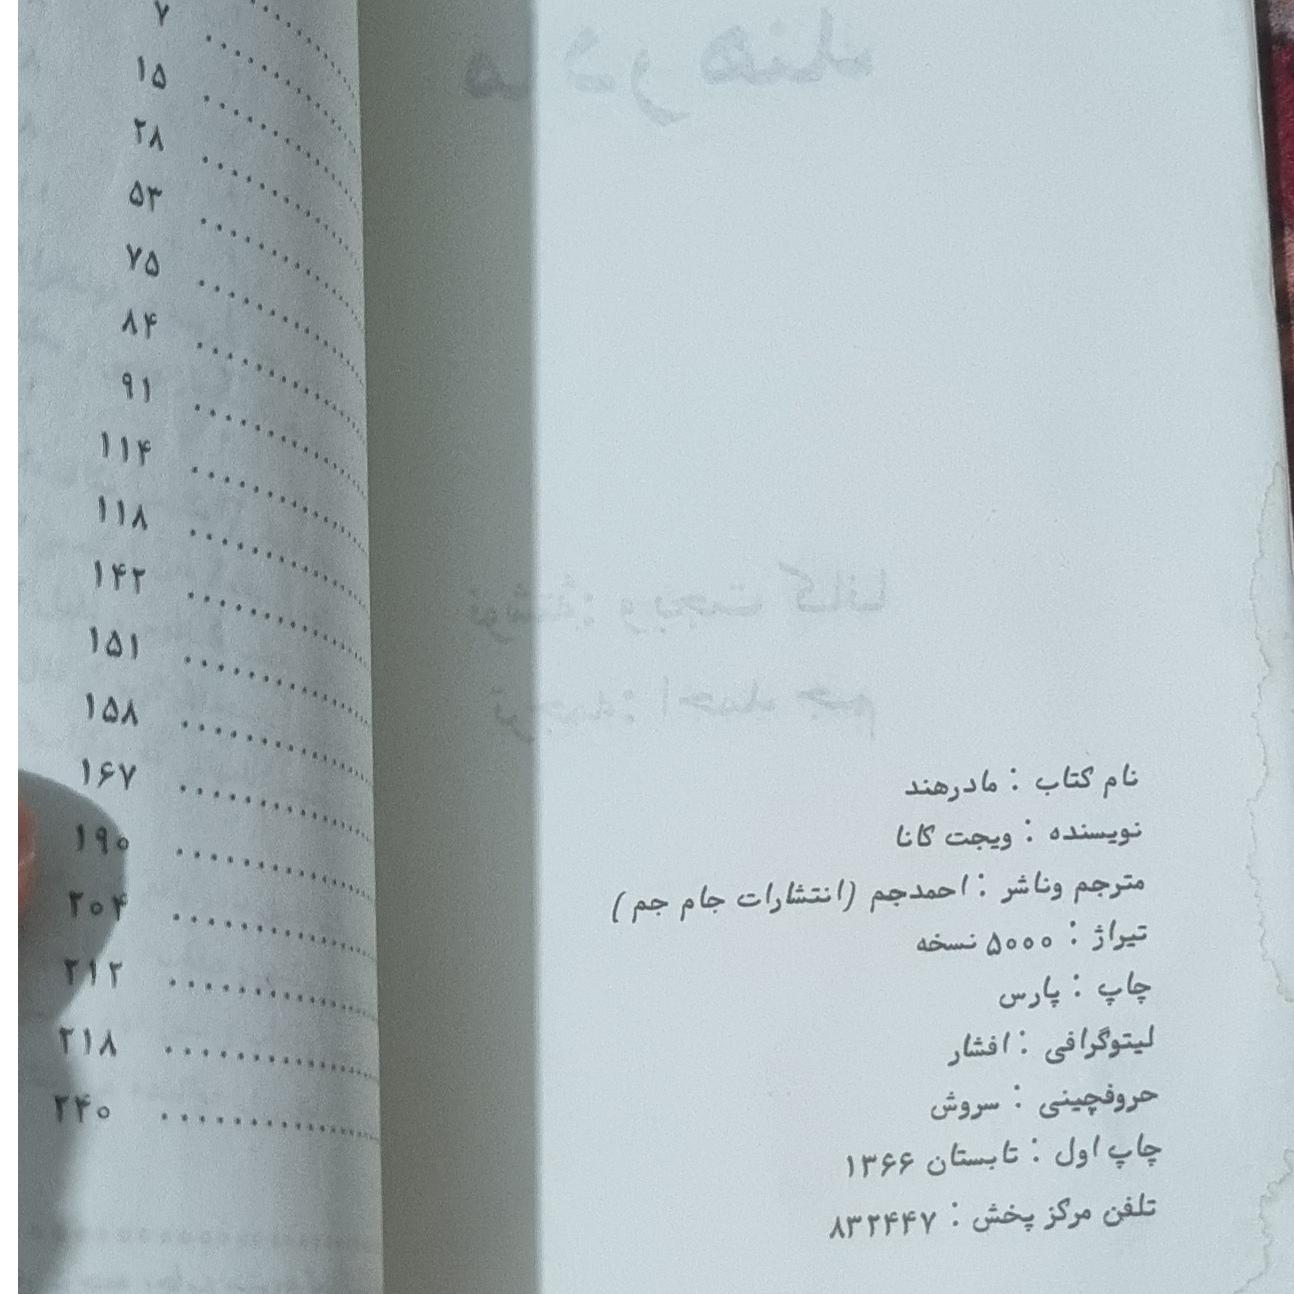 نام کتاب : مادرهند
نویسنده : ویجت کانا
مترجم وناشر : احمدجم (انتشارات جام جم)
تیراژ : ۵۰۰۰ نسخه
چاپ : پارس
لیتوگرافی : افشار
حروفچینی : سروش
چاپ اول : تابستان ۱۳۶۶
تلفن مرکز پخش : ۸۳۲۴۴۷
۷
۱۵
۲۸
۵۳
۷۵
۸۴
۹۱
۱۱۴
۱۱۸
۱۴۲
۱۵۱
۱۵۸
۱۶۷
۱۹۰
۲۰۴
۲۱۲
۲۱۸
۲۴۰